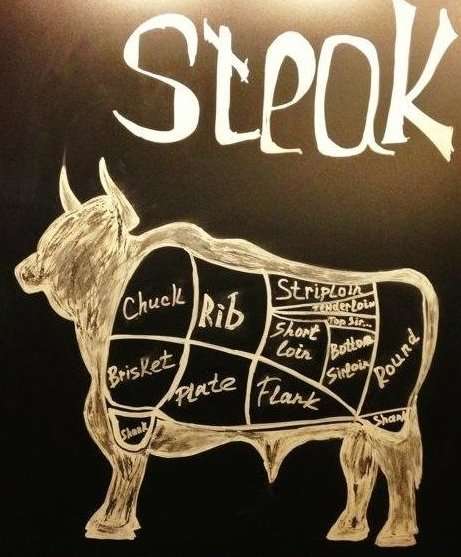 Steak
Chuck
Rib
Striploin
Tenderloin
Top Sir...
Short
loin
Bottom
Sirloin
Round
Brisket
Plate
Flank
Shank
Shank